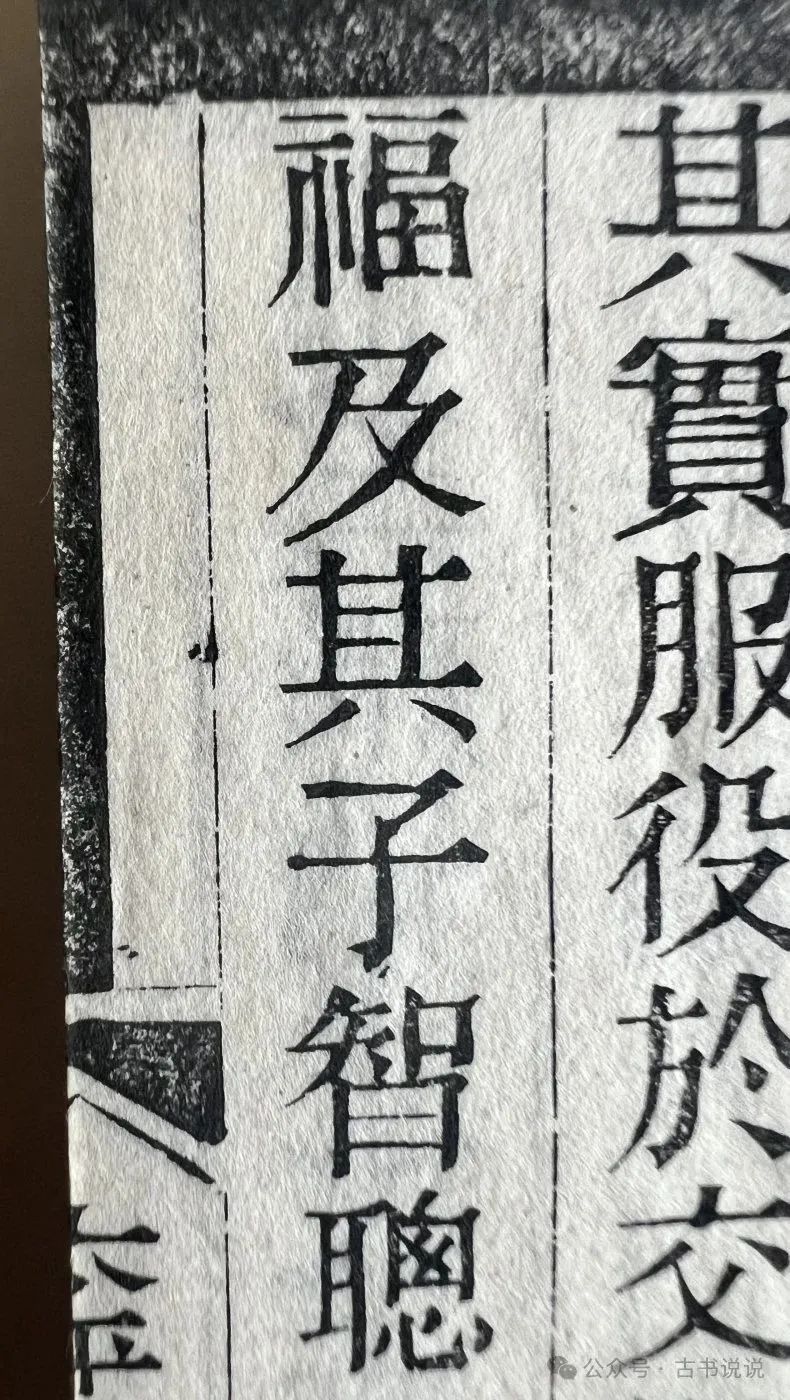 其實服役於交
福及其子智聰
公众号·古书说说